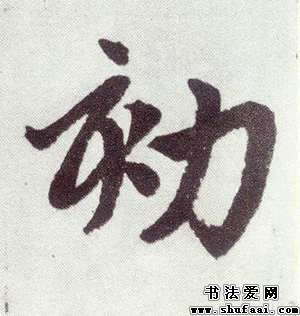 劾
书法爱网
www.shufaai.com